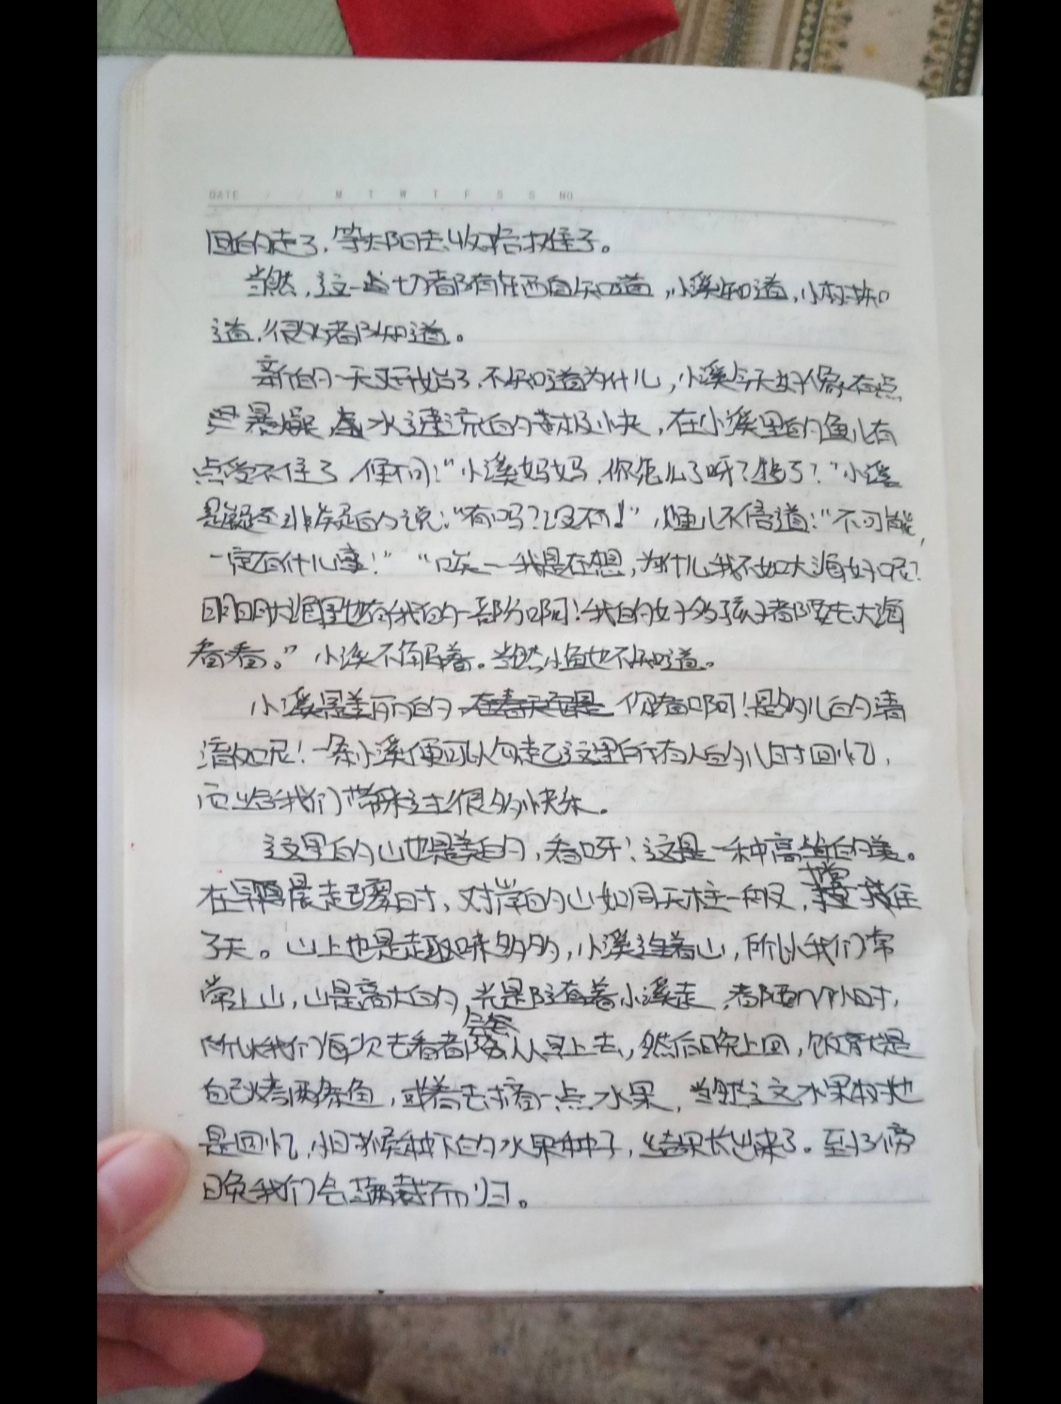 DATE / / M T W T F S S NO
回的走了，等太阳去收拾摊子。
当然，这一切都有东西自知道，小溪知道，小树知
道，很多都知道。
新的一天又开始了，不知道为什么，小溪今天好像有点
暴躁，水速流的特极小快，在小溪里的鱼儿有
点受不住了，便问："小溪妈妈，你怎么了呀？想了？"小溪
是疑非疑的说："有吗？没有！"，鱼儿不信道："不可能，
一定有什么事！" "唉——我是在想，为什么我不如大海好呢？
明明大海里也有我的一部分啊！我的好多孩子都要去大海
看看。"小溪不解着。当然小鱼也不知道。
小溪是美丽的，你看啊！是多儿的清
澈如呢！一条小溪便可以勾起这里所有人的儿时回忆，
而给我们带来这很多快乐。
这里的山也是美的，看呀！这是一种高的美。
在早晨起雾时，对岸的山如同天柱一般，撑住
了天。山上也是趣味多多，小溪连着山，所以我们常
常上山，山是高大的，光是随着小溪走，都要个小时，
所以我们每次去看都会从早上去，然后晚上回，饭就是
自己烤两条鱼，或着去摘一点水果，当然这水果树也
是回忆，小时候种下的水果种子，结果长出来了。到了傍
晚我们会满载而归。